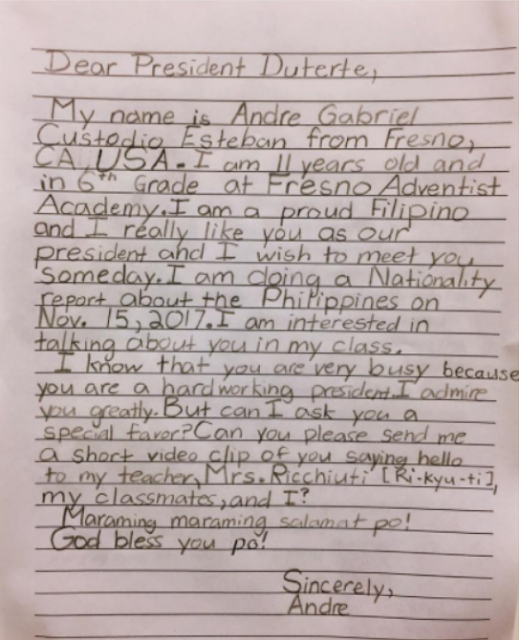 Dear President Duterte,
My name is Andre Gabriel
Custodio Esteban from Fresno,
CA, USA. I am 11 years old and
in 6th Grade at Fresno Adventist
Academy. I am a proud Filipino
and I really like you as our
president and I wish to meet you
someday. I am doing a Nationality
report about the Philippines on
Nov. 15, 2017. I am interested in
talking about you in my class.
I know that you are very busy because
you are a hardworking president. I admire
you greatly. But can I ask you a
special favor? Can you please send me
a short video clip of you saying hello
to my teacher, Mrs. Ricchiuti [Ri-kyu-ti],
my classmates, and I?
Maraming maraming salamat po!
God bless you po!
Sincerely,
Andre